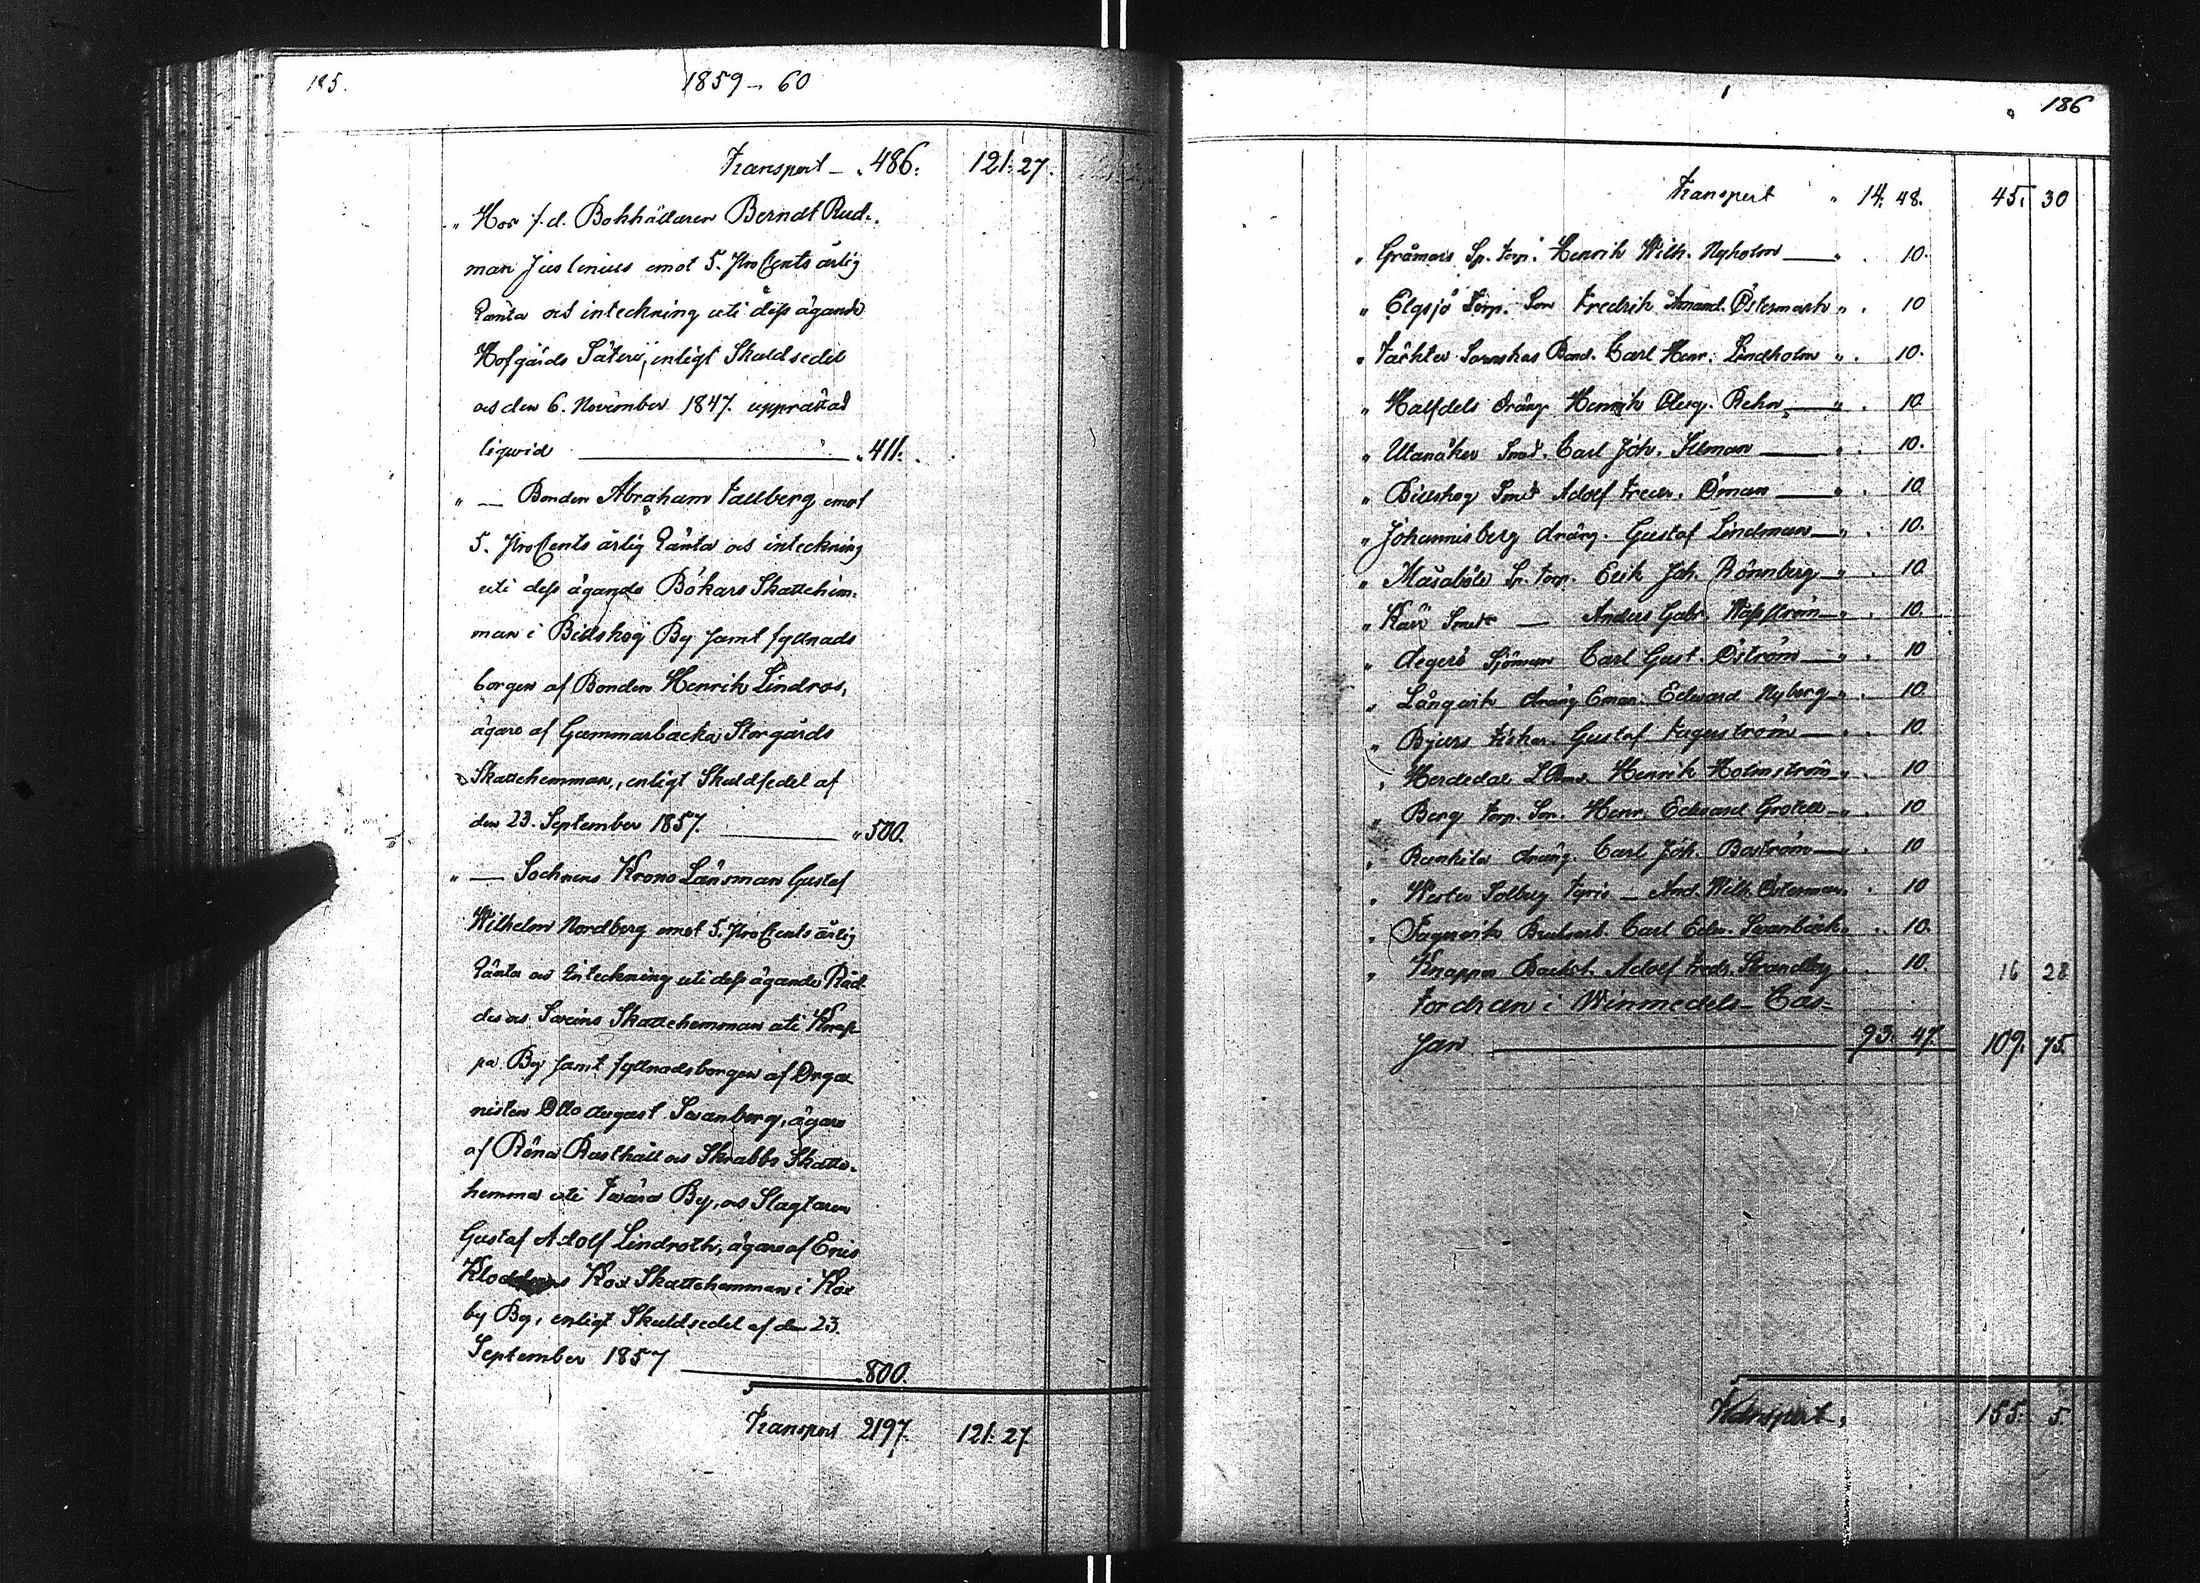 185.
1859–60
Transport – „ 486. 121: 27.
„ Hos f. d. Bokhållaren Berndt Rud-
man Juslenius emot 5. ProCents årlig
Ränta och inteckning uti dess ägande
Hofgårds Säteri, enligt Skuldsedel
och den 6. November 1847. upprättad
liqvid „ 411:
„ — Bonden Abraham Fallberg emot
5. ProCents årlig Ränta och inteckning
uti dess ägande Bökars Skattehem-
man i Billskog By samt fyllnads
borgen af Bonden Henrik Lindros,
ägare af Gammarbacka Storgårds
Skattehemman, enligt Skuldsedel af
den 23. September 1857. „ 500.
„ — Socknens Krono Länsman Gustaf
Wilhelm Nordberg emot 5. ProCents årlig
Ränta och Inteckning uti dess ägande Räd-
des och Sveins Skattehemman uti Knap-
pa By samt fyllnadsborgen af Orga-
nisten Otto August Swanberg, ägare
af Röna Rusthåll och Skrabbs Skatte-
hemma uti Twära By, och Slagtaren
Gustaf Adolf Lindroth, ägare af Eris
Kox Skattehemman i Kox
by By, enligt Skuldsedel af den 23.
September 1857 800.
Transport 2197. 121: 27
186
Transport „ 14. 48. 45. 30
„ Gråmars Sp. torp. Henrik Wilh. Nyholm — „ . 10.
„ Elgsjö Torp. Son Fredrik Amand. Östermark „ . 10
„ Täckter Sonnshas Bond. Carl Henr. Lindholm „ . 10.
„ Halfdels dräng Henrik Olig. Rehn — „ . 10.
„ Utanåker Smed. Carl Joh. Silman — „ . 10.
„ Billskog Smed Adolf Fredr. Öman — „ . 10.
„ Johannisberg dräng. Gustaf Lindman — „ . 10.
„ Masaböle Sp. torp. Erik Joh. Rönnberg — „ . 10.
„ Kärr Smed — Anders Gabr. Näfström — „ . 10.
„ Degerö Sjöman Carl Gust. Öström — „ . 10
„ Långvik dräng Eman. Edward Nyberg — „ . 10.
„ Bjurs Fisker. Gustaf Fagerström — „ . 10.
„ Herdedal Henrik Holmström „ . 10
„ Berg Torp. Son. Henr. Edward Grotell — „ . 10
„ Runkila dräng. Carl Joh. Boström — „ . 10
„ Wester Solberg — And. Wilh. Österman „ . 10
„ Fagervik Bruksarb. Carl Edv. Swanbäck „ . 10.
„ Knappa Backst. Adolf Fredr. Strandberg . . 10. 16 28
Fordran i Winmedels-Cas-
san 93. 47. 109. 75.
Transport, 155. 5.